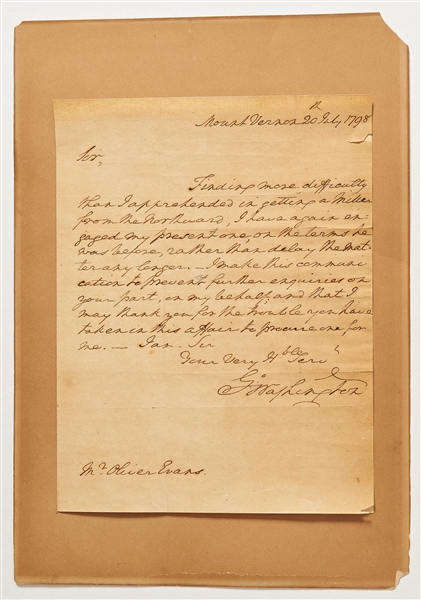 Mount Vernon 20th July 1798
Sir,
Finding more difficulty
than I apprehended in getting a Miller
from the Northward, I have again en-
gaged my present one, on the terms he
was before, rather than delay the mat-
ter any longer. — I make this communi-
cation to prevent further enquiries on
your part, on my behalf, and that I
may thank you for the trouble you have
taken in this affair to procure one for
me. — I am. Sir
Your Very Hble Servt
Go: Washington
Mr. Oliver Evans.